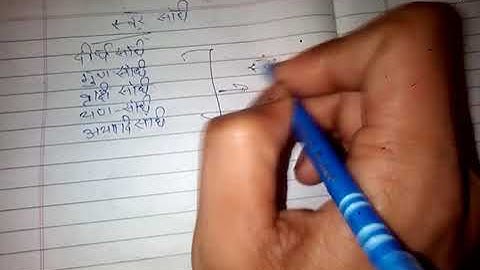 स्वर संधी
दीर्घ संधी
गुण संधी
वृद्धी संधी
यण संधी
अयादि संधी